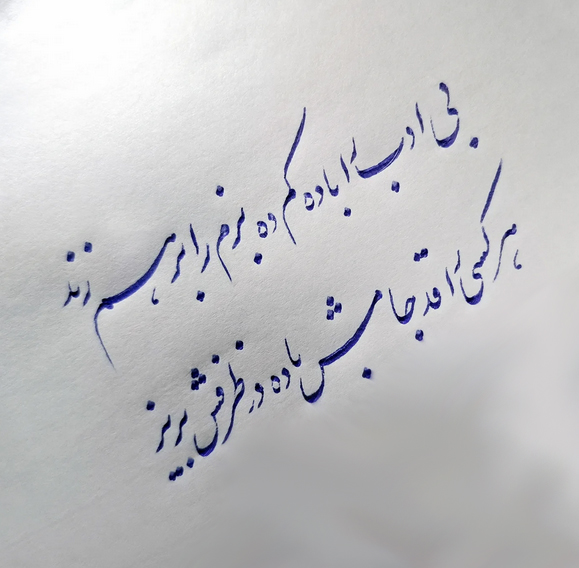 بی ادب را باده کم ده بزم را بر هم زند
هر کسی را قد جامش باده در ظرفش بریز